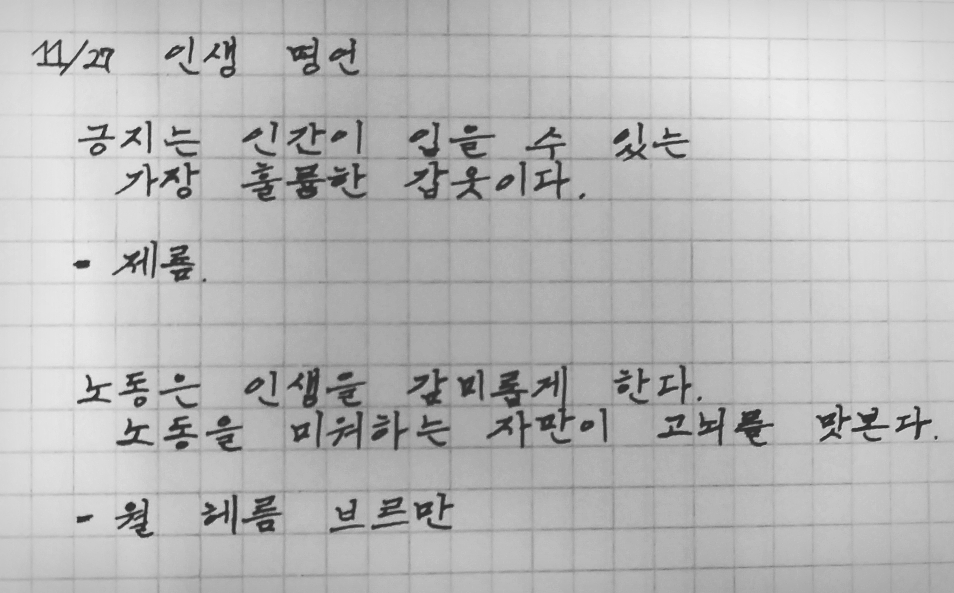 11/27 인생 명언
긍지는 인간이 입을 수 있는
가장 훌륭한 갑옷이다.
- 제롬.
노동은 인생을 감미롭게 한다.
노동을 미워하는 자만이 고뇌를 맛본다.
- 월 헤름 브르만